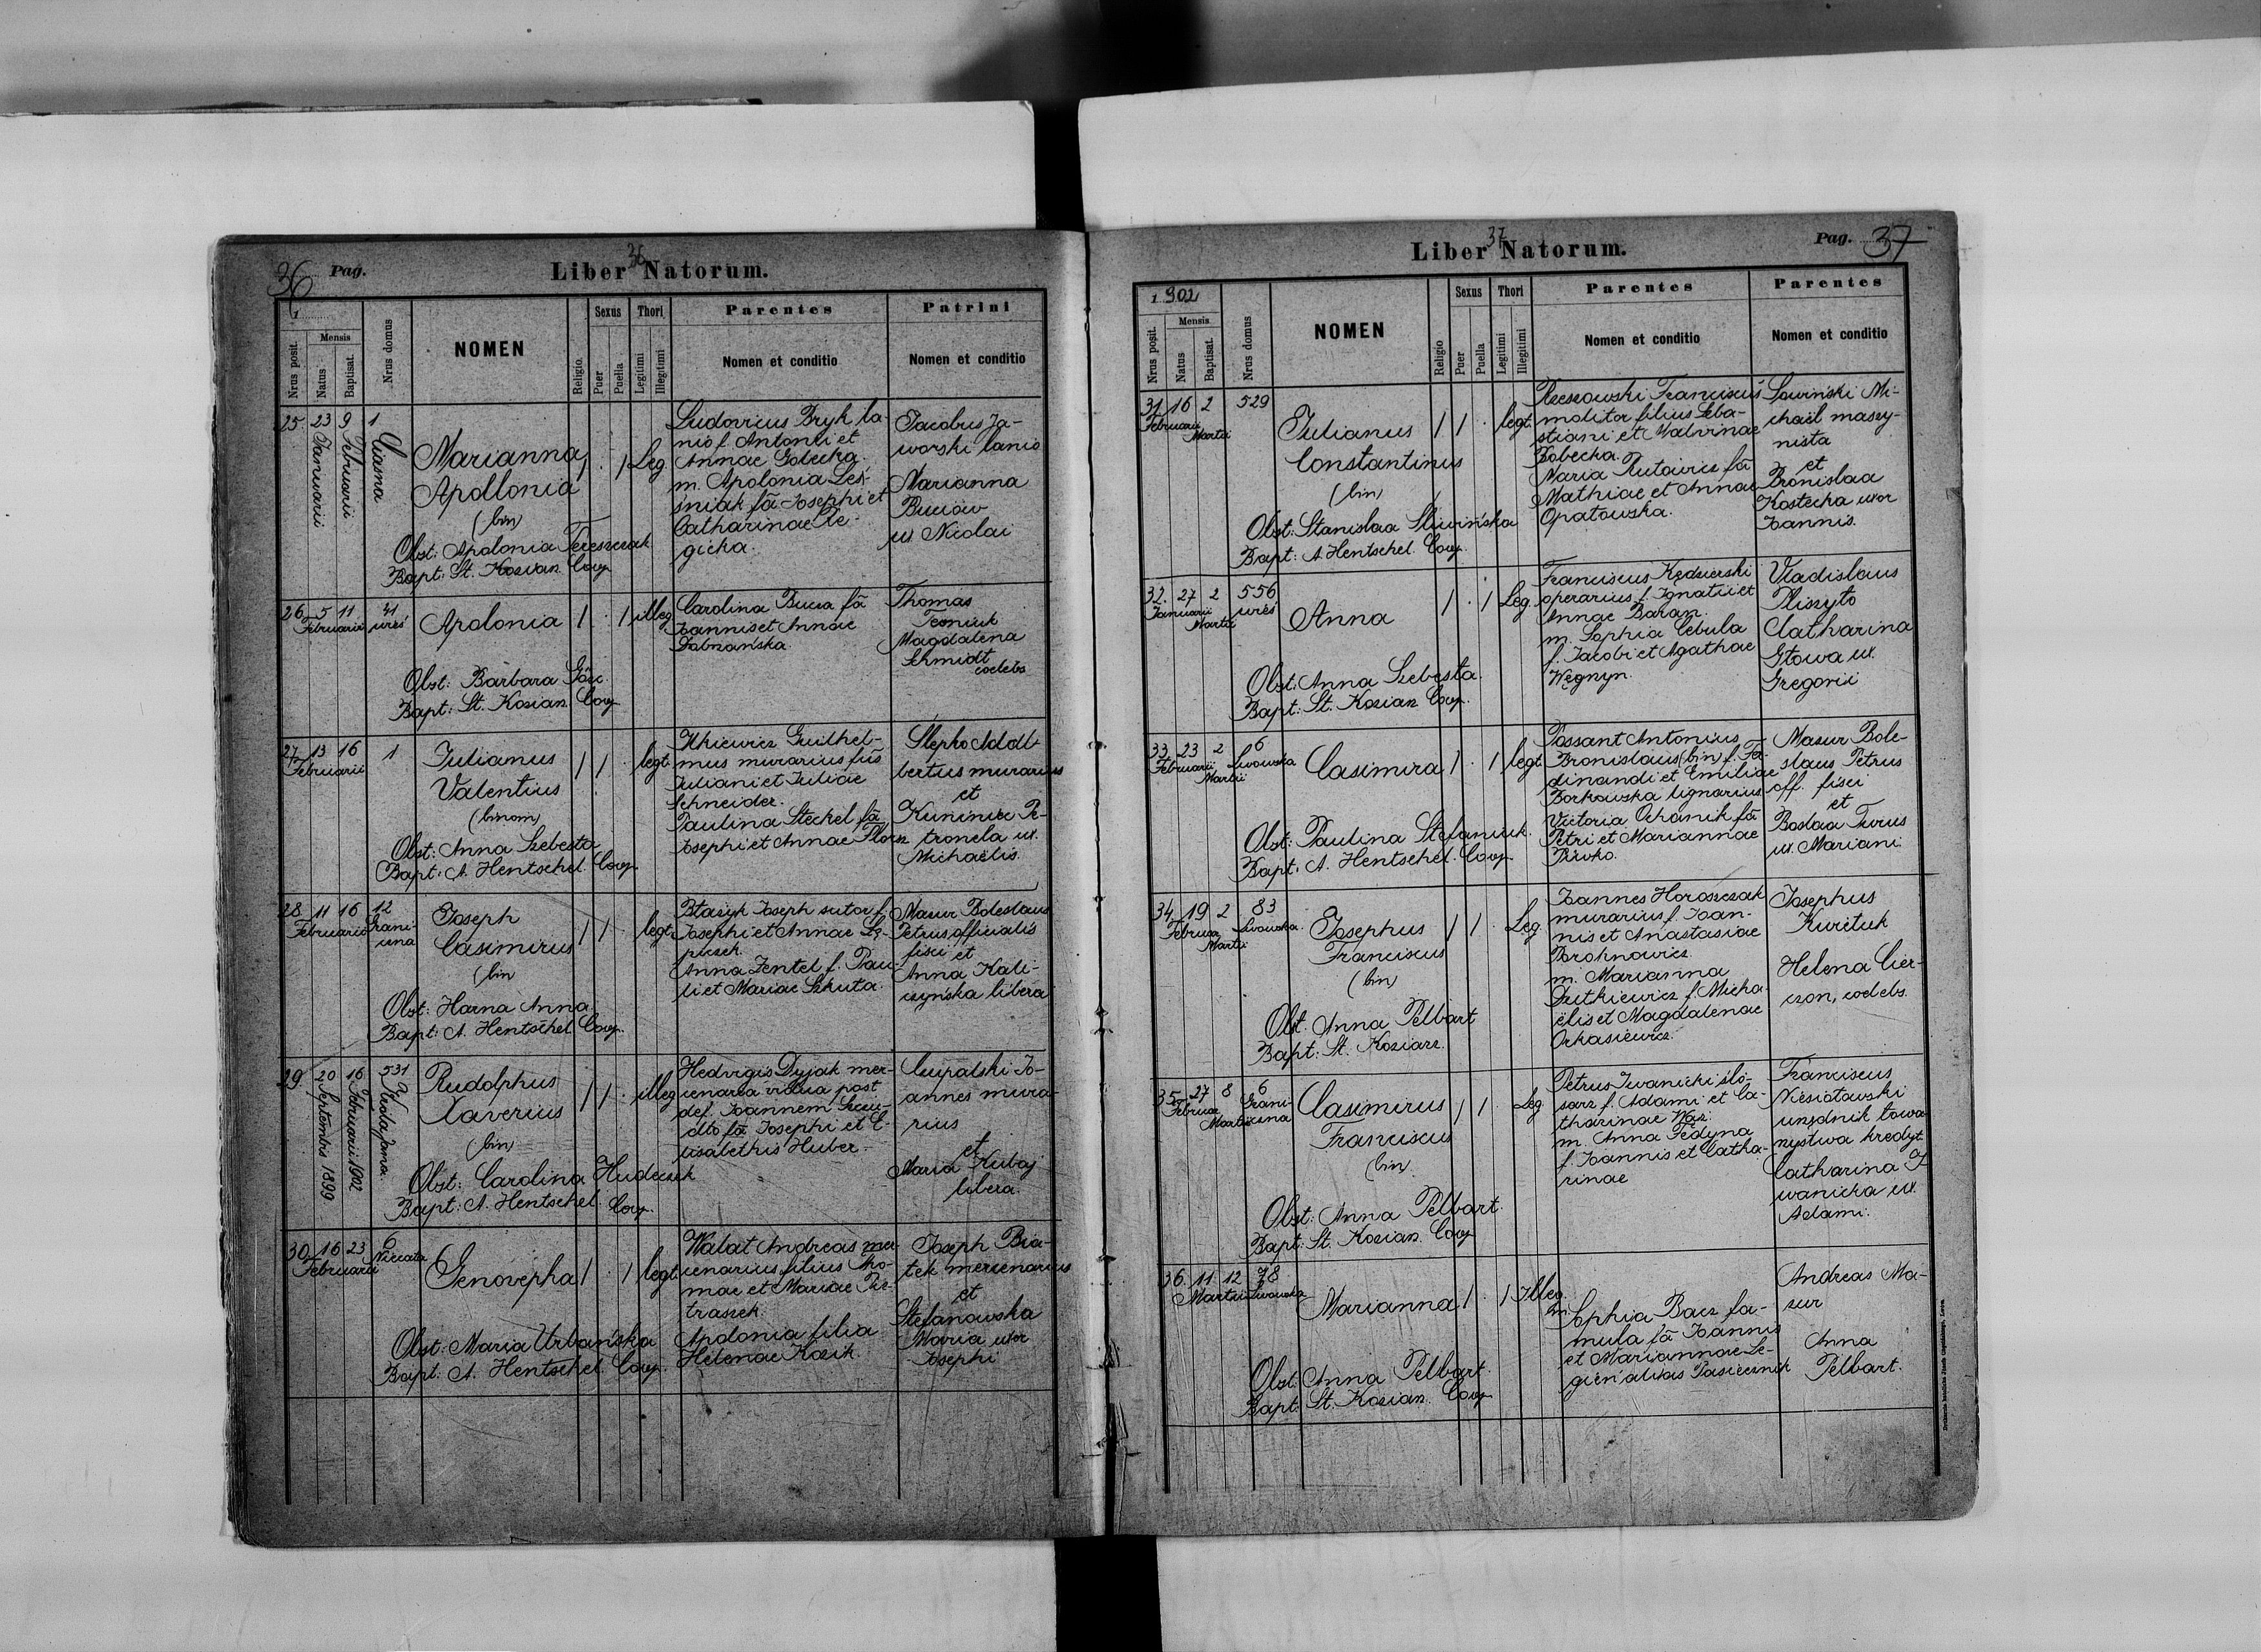 36 Pag.
36
Liber Natorum.
1
Nrus posit.
Mensis
Natus
Baptisat.
Nrus domus
NOMEN
Religio.
Sexus
Puer
Puella
Thori
Legitimi
Illegitimi
Parentes
Nomen et conditio
Patrini
Nomen et conditio
25. 23 9 1
Januarii
Februarii
Ciasna
Marianna
Apollonia
(bin)
1 . 1 Leg.
Obst: Apolonia Tereszczak
Bapt: St. Koziarz Coop
Ludovicus Bryk la-
nio f. Antonii et
Annae Gobecka.
m. Apolonia Leś-
śniak fa Josephi et
Catharinae Re-
gicka.
Jacobus Ja-
worski lanio
Marianna
Buciów
ux Nicolai
26. 5 11 41
Februarii
Apolonia
1 . 1 illeg
Obst: Barbara
Bapt: St. Koziarz Coop
Carolina Bucza fa
Joannis et Annae
Thomas
Magdalena
Schmidt
coelebs
27. 13 16 1
Februarii
Julianus
Valentius
(binom)
1 1 . legt.
Obst: Anna Szebesta
Bapt: A. Hentschel. Coop.
Guilhel-
mus murarius fus
Juliani et Juliae
Schneider.
Paulina Steckel fa
Josephi et Annae
Slepko Adal-
bertus murarius
et
Pe-
tronela ux.
Michaëlis.
28. 11 16 12
Februarii
Grani-
czna
Joseph
Casimirus
(bin
1 1 . legt.
Obst: Harna Anna
Bapt: A. Hentschel Coop.
Błażyk Joseph sutor f.
Josephi et Annae Lę-
puszek.
Anna Zentel f. Pau-
li et Mariae Szkuta.
Mazur Boleslaus
Petrus officialis
fisci et
Anna Kali-
czyńska libera
29. 20 16 531
Septembris 1899
Februarii 1902
Rudolphus
Xaverius
(bin)
1 1 . illeg
Obst: Carolina Hudeczek
Bapt: A. Hentschel. Coop.
Hedvigis Dyjak mer-
cenaria vidua post
def. Joannem
fa Josephi et E-
lisabethis Huber.
Czupalski Jo-
annes mura-
rius
et
Maria Kubaj
libera.
30. 16 23 6
Februarii
Genovepha
1 . 1 legt.
Obst: Maria Urbańska
Bapt: A. Hentschel. Coop.
Walat Andreas mer-
cenarius filius Tho-
mae et Mariae Pie-
traszek.
Apolonia filia
Helenae Kozik.
Joseph Bia-
łek mercenarius
et
Stefanowska
Maria uxor
Josephi
37
Liber Natorum.
Pag. 37
1902
Nrus posit.
Mensis
Natus
Baptisat.
Nrus domus
NOMEN
Religio
Sexus
Puer
Puella
Thori
Legitimi
Illegitimi
Parentes
Nomen et conditio
Parentes
Nomen et conditio
31. 16 2 529
Februarii
Martii
Julianus
Constantinus
(bin)
1 1 . legt.
Obst: Stanislaa Śliwińska
Bapt: A. Hentschel. Coop.
Rzeszowski Franciscus
molitor filius Seba-
stiani et Malvinae
Bobecka.
Maria Rutowicz fa
Mathiae et Annae
Opatowska.
Sowiński Mi-
chaël maszy-
nista
et
Bronislaa
Kostecka uxor
Joannis.
32. 27 2 556
Januarii
Martii
Anna
1 . 1 Leg.
Obst: Anna Szebesta
Bapt: St. Koziarz Coop.
Franciscus Kędzierski
operarius f. Ignatii et
Annae Baran.
m. Sophia Cebula
f. Jacobi et Agathae
Węgrzyn.
Vladislaus
Pliszyło
Catharina
Głowa ux.
Gregorii
33. 23 2 6
Februarii
Martii
Lwowska
Casimira
1 . 1 legt
Obst: Paulina Stefaniuk.
Bapt: A. Hentschel. Coop.
Possant Antonius
Bronislaus (bin) f. Fer-
dinandi et Emiliae
Borkowska lignarius
Victoria Ochanik fa
Petri et Mariannae
Mazur Bole-
slaus Petrus
off. fisci
et
ux. Mariani.
34. 19 2 83
Februar
Martii
Lwowska.
Josephus
Franciscus
(bin)
1 1 . Leg.
Obst. Anna Pelbart
Bapt: St. Koziarz.
Joannes Horoszczak
murarius f. Joan-
nis et Anastasiae
Brohnowicz.
m. Marianna
Dzitkiewicz f. Micha-
ëlis et Magdalenae
Orkasiewicz.
Josephus
Kuretuk
Helena Cier-
czon, coelebs.
35. 27 8 6
Februar
Martii
Grani-
czna
Casimirus
Franciscus
(bin)
1 1 . Leg
Obst: Anna Pelbart.
Bapt: St. Koziarz. Coop
Petrus Iwanicki ślo-
sarz f. Adami et Ca-
tharinae Wąs.
m. Anna Fedyna
f. Joannis et Catha-
rinae
Franciscus
Niesiołowski
urzędnik towa-
rzystwa kredyt.
Catharina I-
wanicka ux.
Adami.
36. 11 12 78
Martii
Lwowska
Marianna
1 . 1 Illeg.
m.
Obst: Anna Pelbart.
Bapt: St. Koziarz. Coop
Sophia Bacz fa-
mula fa Joannis
et Mariannae Le-
gień alias Pasiecznik
Andreas Ma-
zur
Anna
Pelbart.